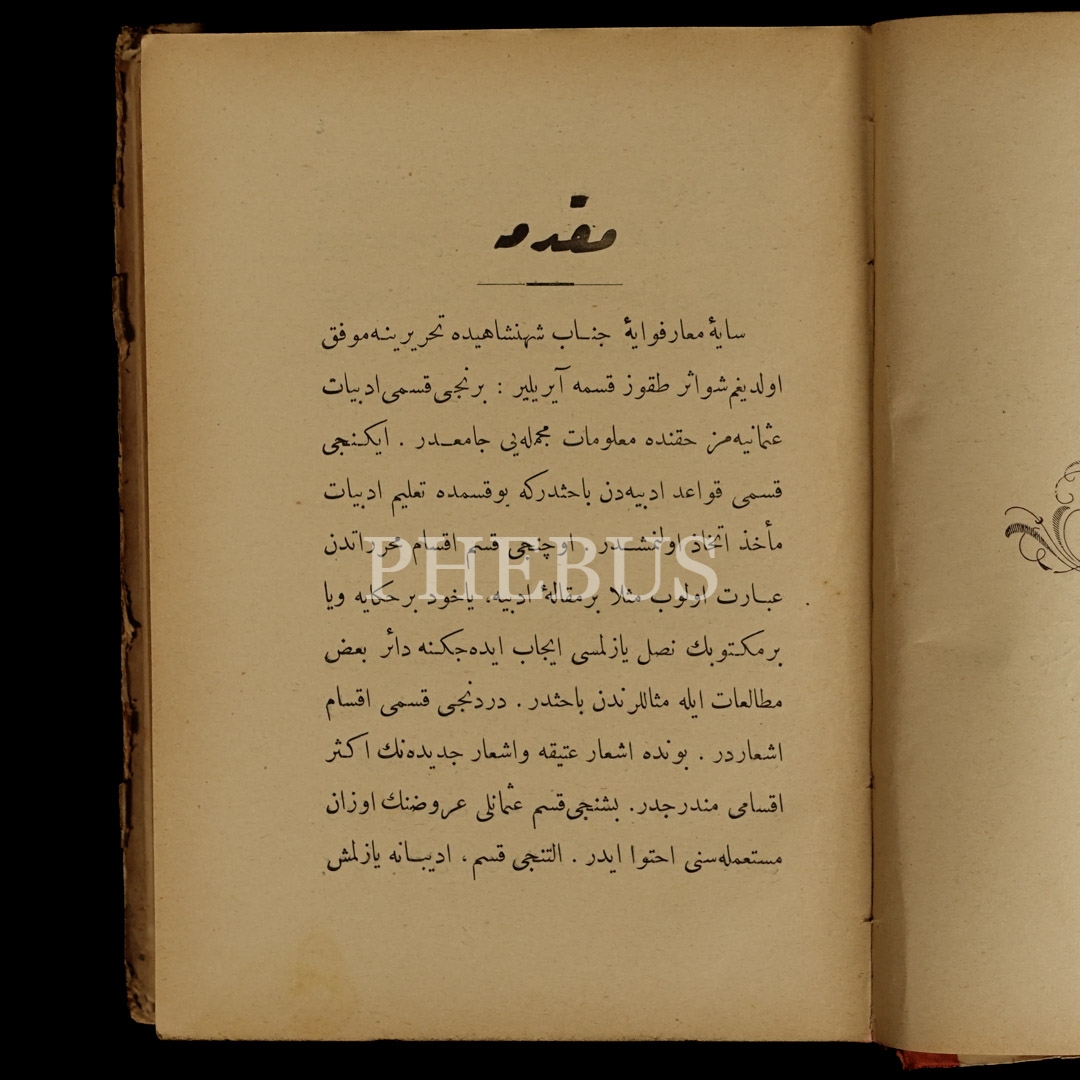 مقدمه
سایۀ معارفوایۀ جناب شهنشاهیده تحریرینه موفق
اولدیغم شو اثر طقوز قسمه آیریلیر : برنجی قسمی ادبیات
عثمانیه مز حقنده معلومات مجمله یی جامعدر . ایکنجی
قسمی قواعد ادبیه دن باحثدرکه بو قسمده تعلیم ادبیات
مأخذ اتخاذ اولنمشدر . اوچنجی قسم اقسام محرراتدن
عبارت اولوب مثلا بر مقالۀ ادبیه، یاخود بر حکایه ویا
بر مکتوبك نصل یازلمسی ایجاب ایده جکنه دائر بعض
مطالعات ایله مثاللرندن باحثدر . دردنجی قسمی اقسام
اشعاردر . بونده اشعار عتیقه واشعار جدیده نك اکثر
اقسامی مندرجدر. بشنجی قسم عثمانلی عروضنك اوزان
مستعمله سنی احتوا ایدر . التنجی قسم، ادیبانه یازلمش
PHEBUS